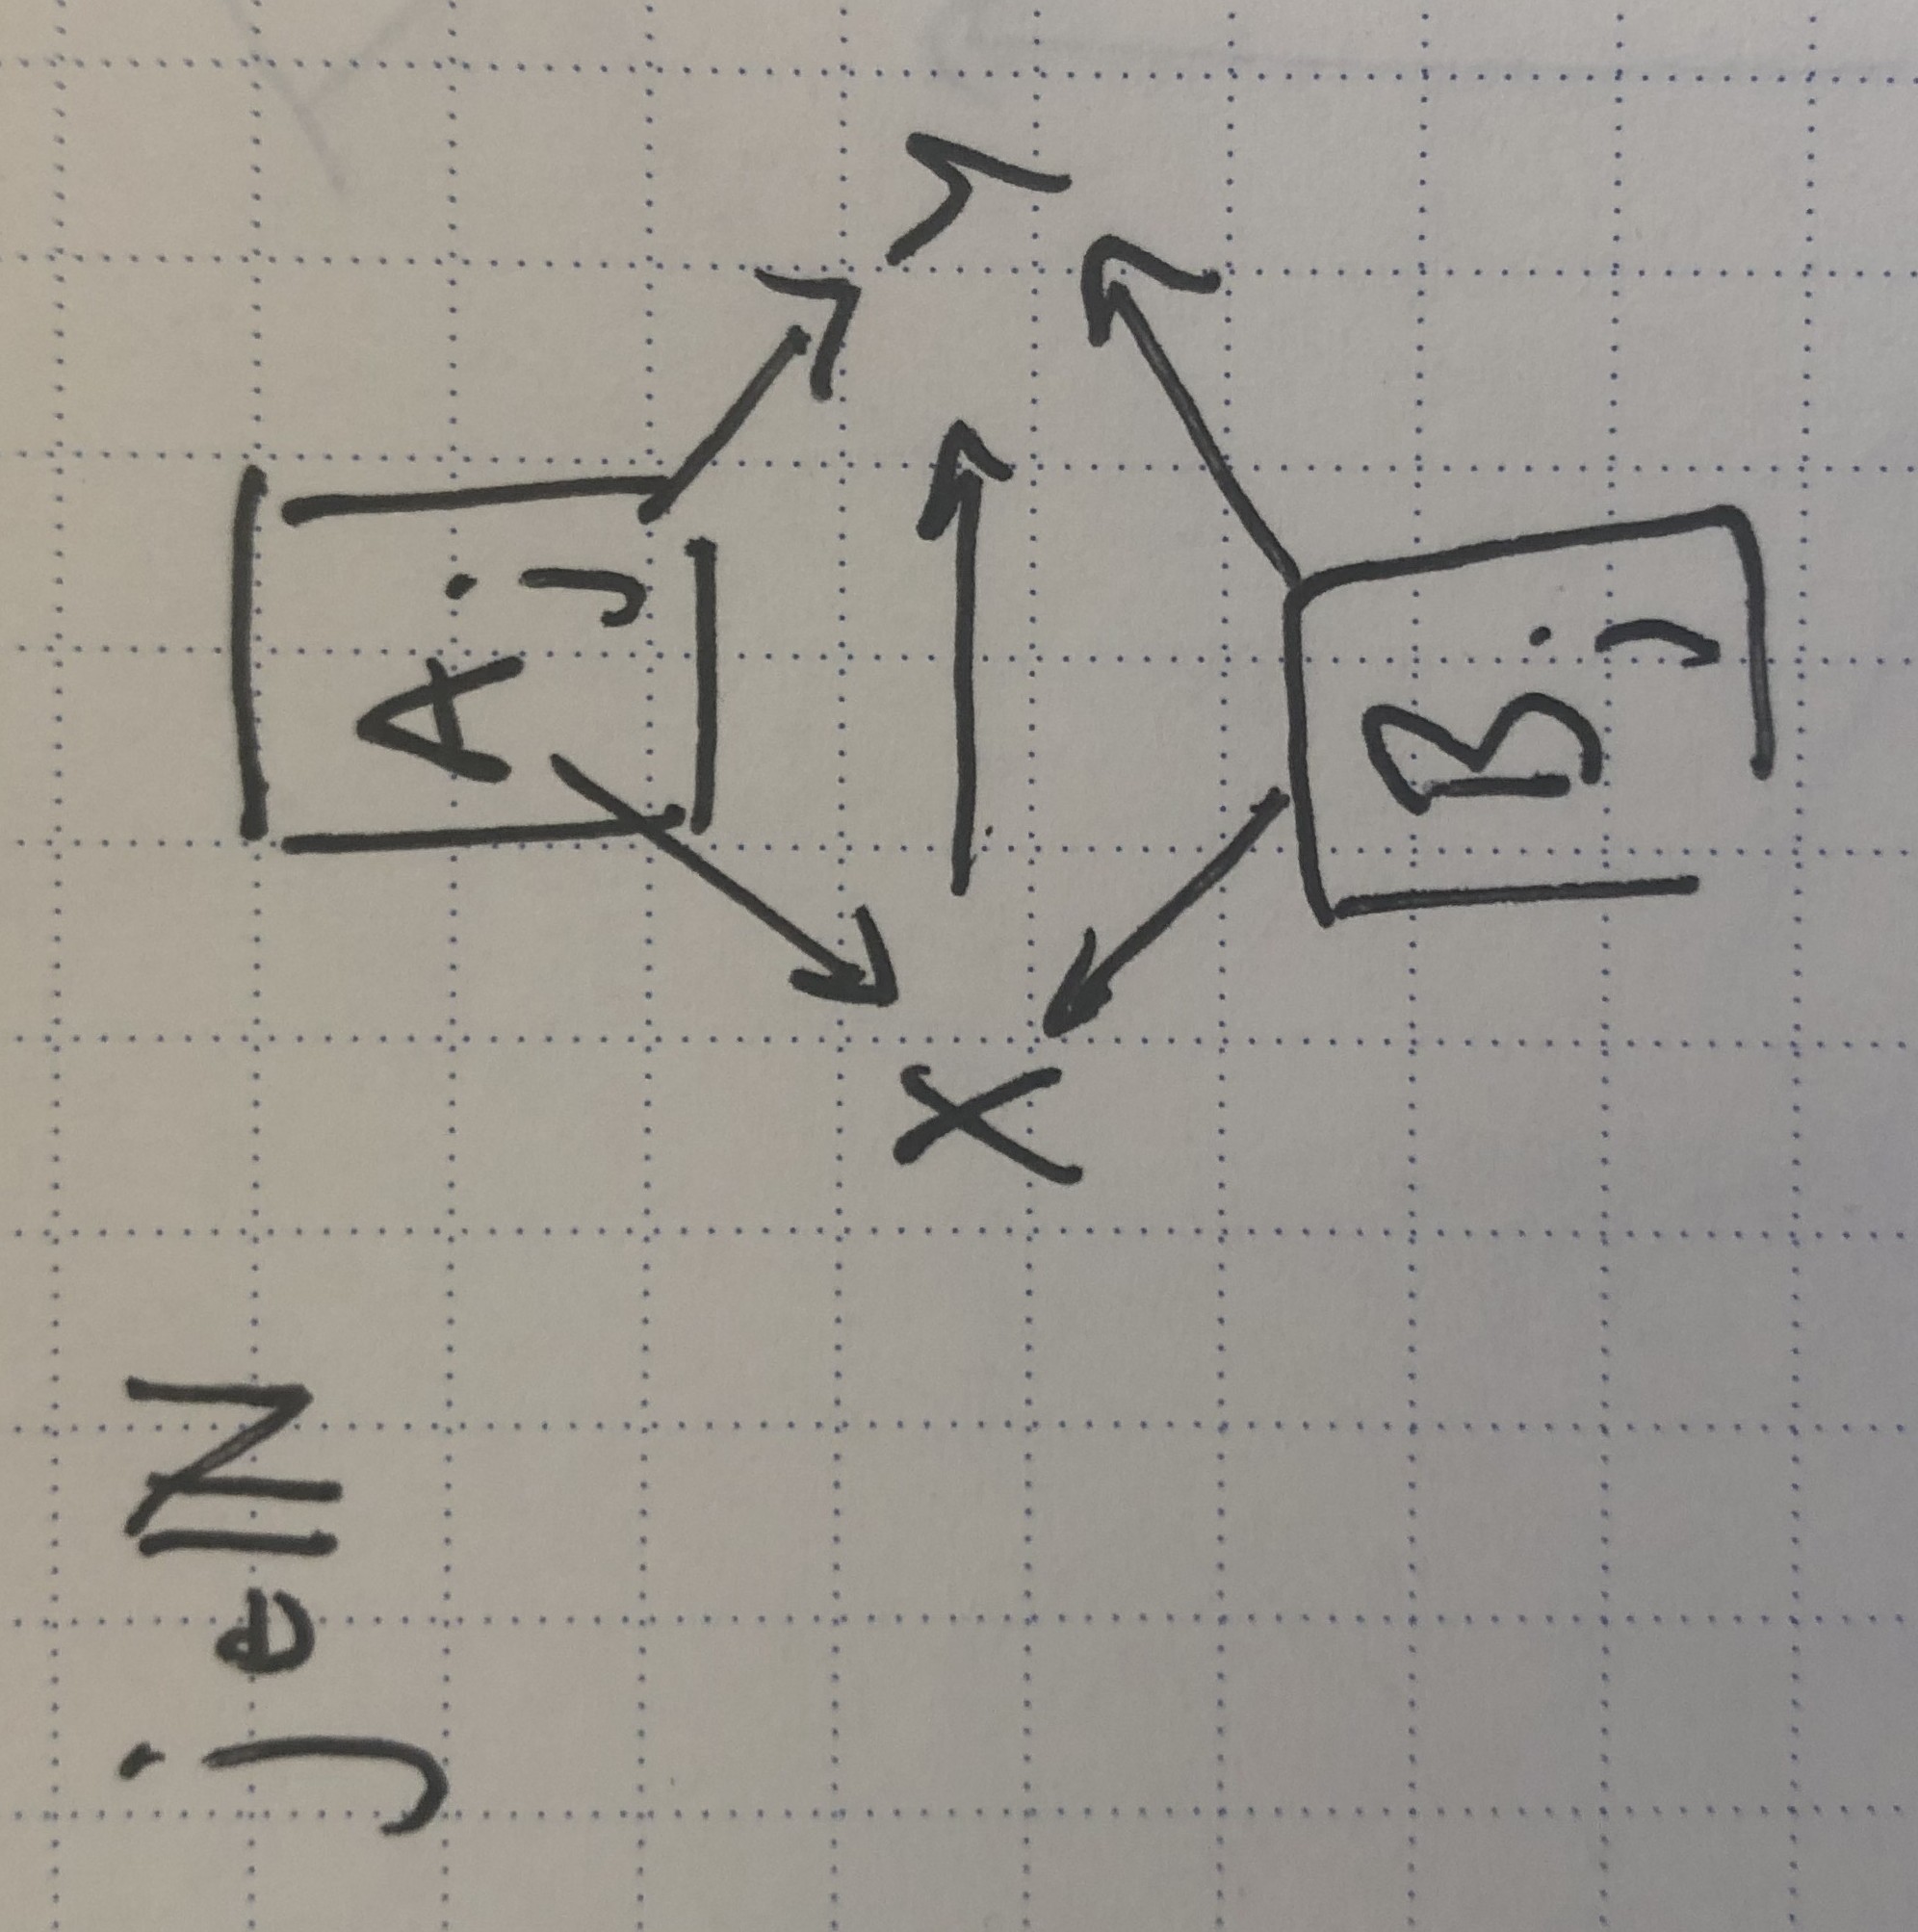 j∈ℕ
A j
X → Y
B j